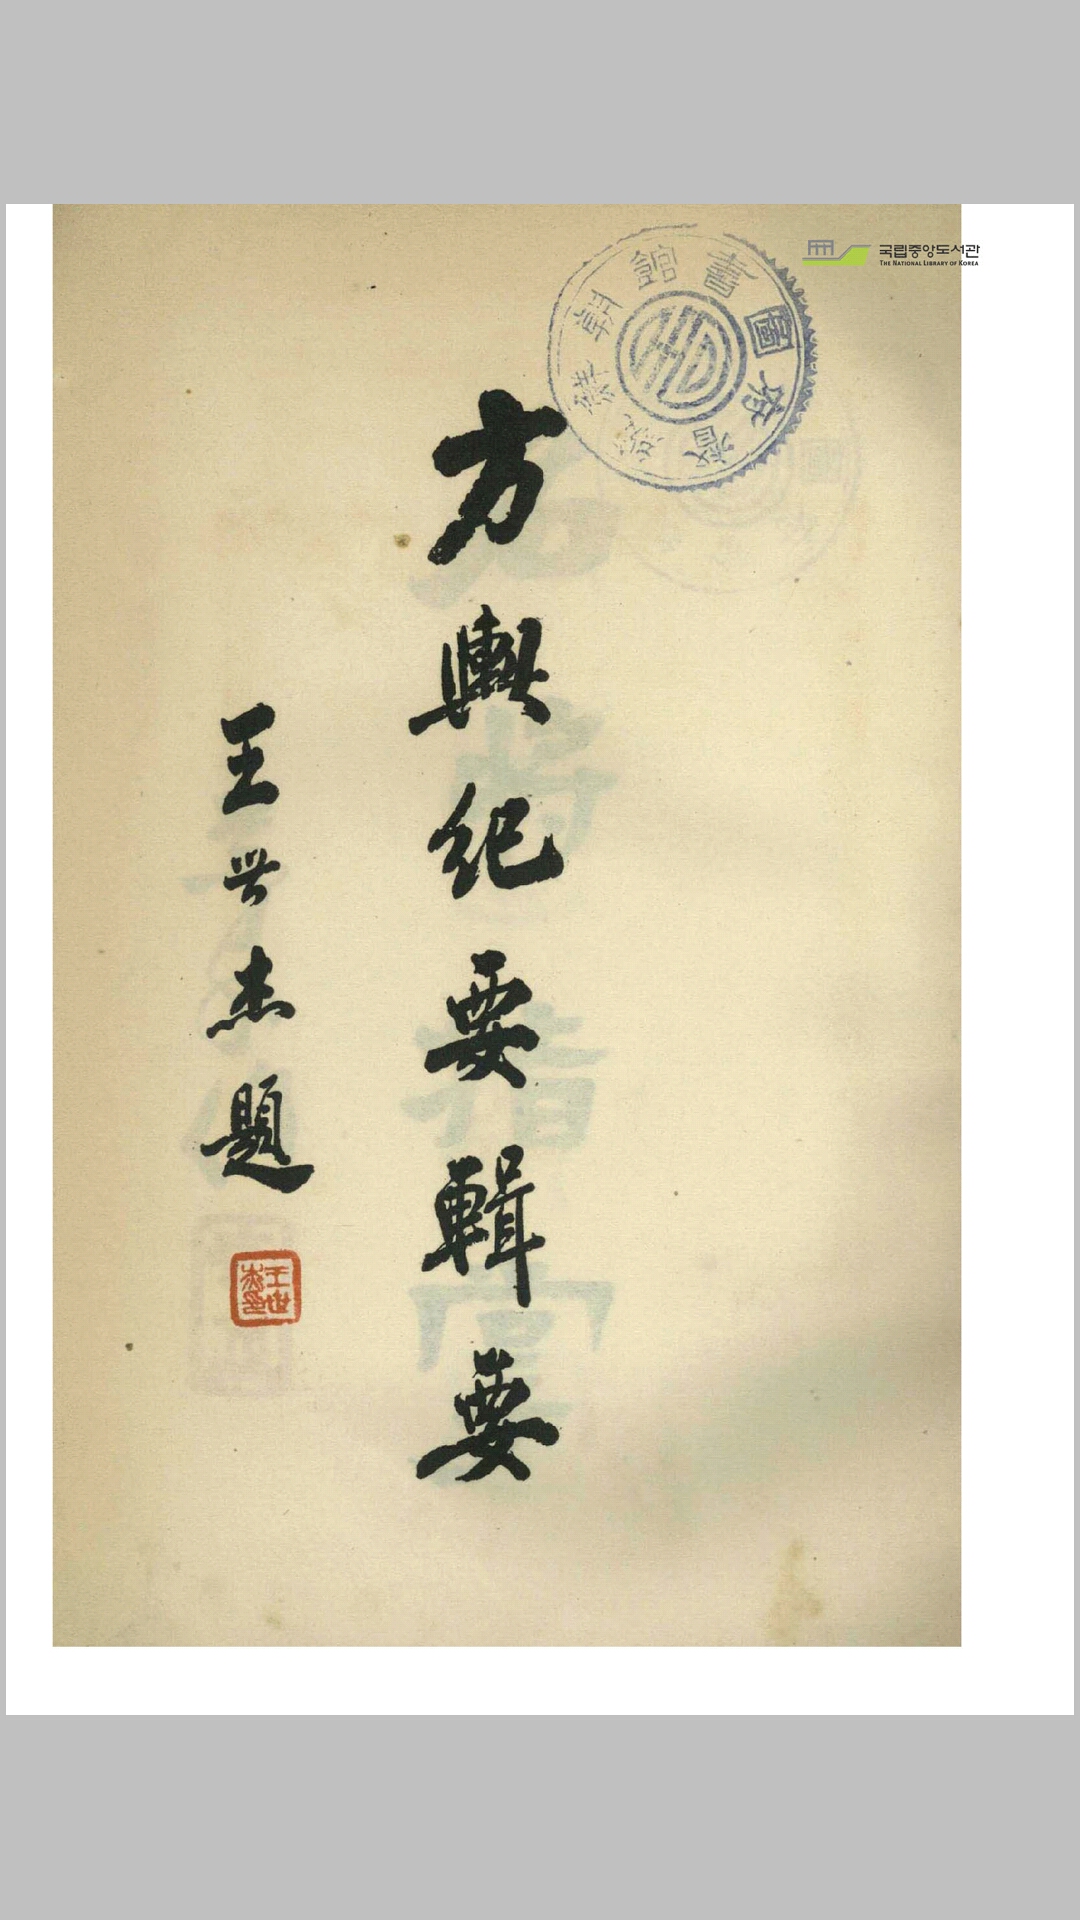 국립중앙도서관
THE NATIONAL LIBRARY OF KOREA
朝鮮總督府圖書館
方輿紀要輯要
王世杰題
王世杰印